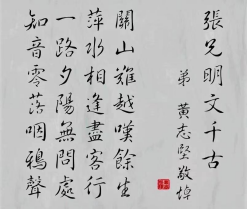 張兄明文千古
弟 黃志堅敬悼
關山難越嘆餘生
萍水相逢盡客行
一路夕陽無問處
知音零落咽鴉聲